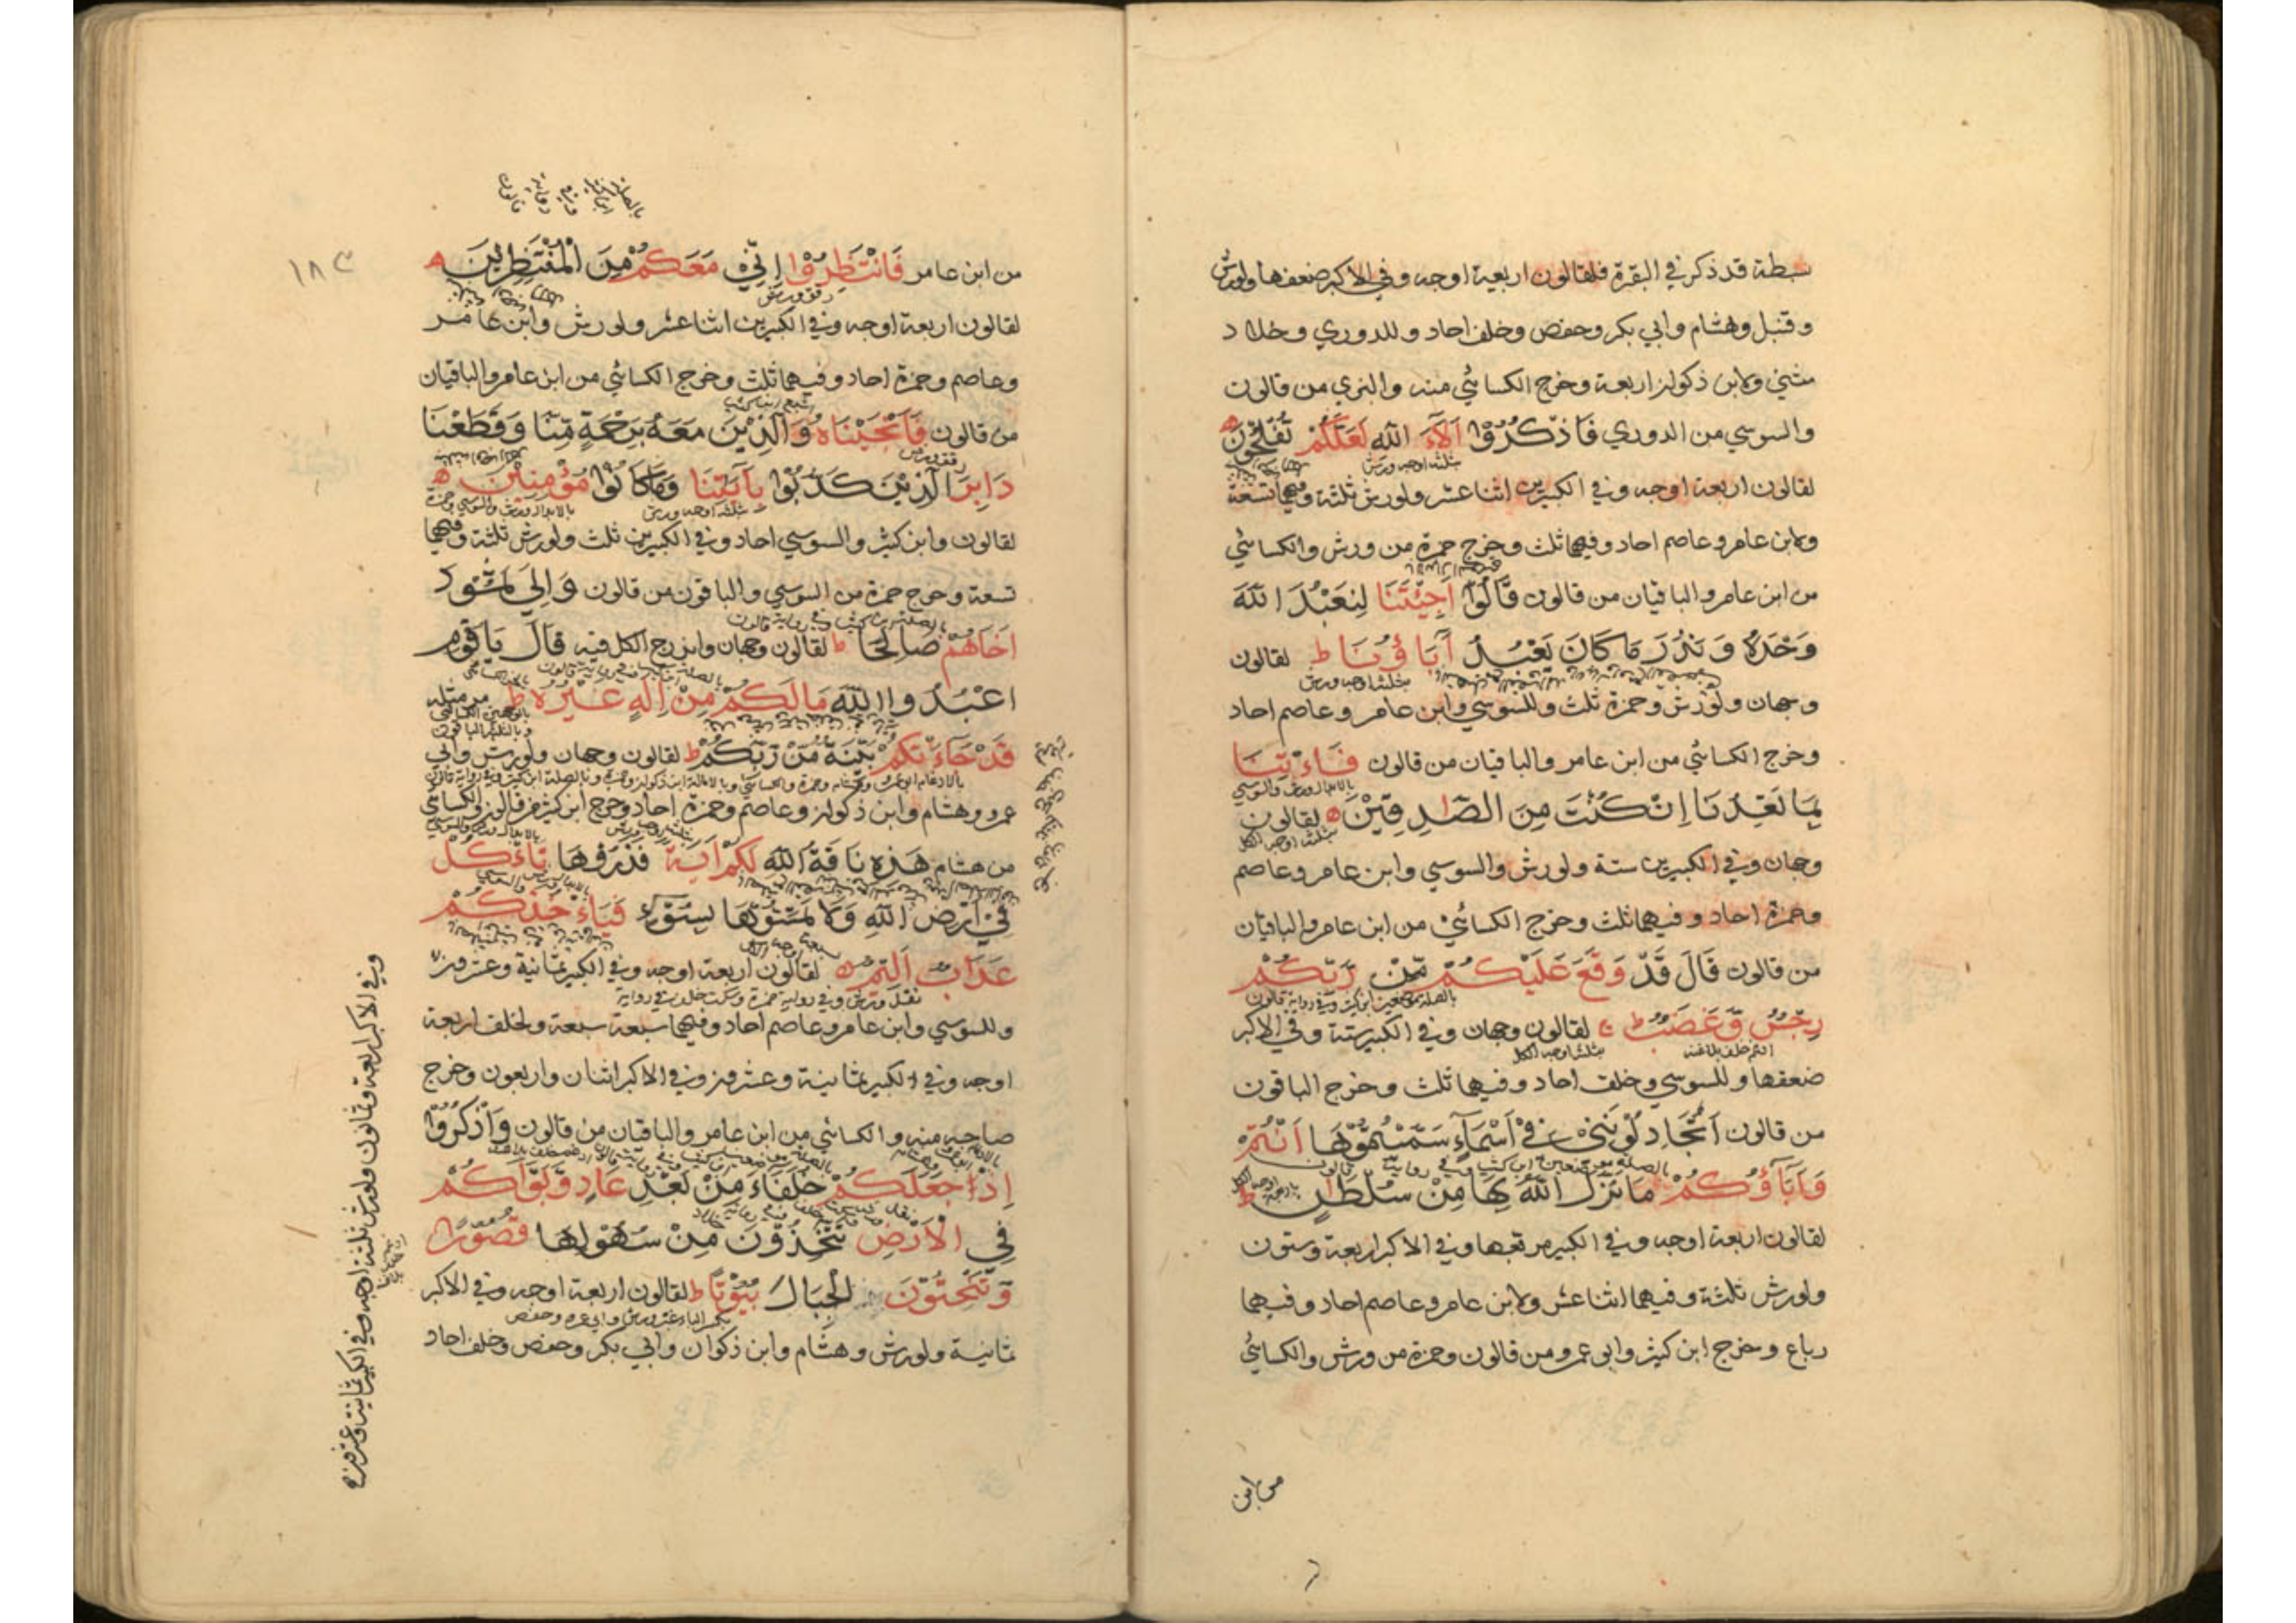 بسطة قد ذكر في البقرة فلقالون اربعة اوجه وفي الاكبر ضعفها ولورش
وقنبل وهشام وابي بكر وحفص وخلف احاد وللدوري وخلاد
مثنى ولابن ذكوان اربعة وخرج الكسائي منه والبزي من قالون
والسوسي من الدوري فَاذْكُرُوْا آلَآءَ اللّٰهِ لَعَلَّكُمْ تُفْلِحُوْنَ
بثلثة اوجه ورش
لقالون اربعة اوجه وفي الكبيرين اثنا عشر ولورش ثلثة وفيهما تسعة
ولابن عامر وعاصم احاد وفيهما ثلث وخرج حمزة من ورش والكسائي
من ابن عامر والباقيان من قالون قَالُوْا اَجِئْتَنَا لِنَعْبُدَ اللّٰهَ
وَحْدَهُ وَنَذَرَ مَا كَانَ يَعْبُدُ آبَاؤُنَا ط لقالون
بثلثة اوجه ورش
وجهان ولورش وحمزة ثلث وللسوسي وابن عامر وعاصم احاد
وخرج الكسائي من ابن عامر والباقيان من قالون فَاْتِنَا
بالابدال ورش والسوسي
بِمَا تَعِدُنَا اِنْ كُنْتَ مِنَ الصّٰدِقِيْنَ لقالون
بثلثة اوجه الكل
وجهان وفي الكبيرين ستة ولورش والسوسي وابن عامر وعاصم
وحمزة احاد وفيهما ثلث وخرج الكسائي من ابن عامر والباقيان
من قالون قَالَ قَدْ وَقَعَ عَلَيْكُمْ مِّنْ رَّبِّكُمْ
بالصلة موضعين ابن كثير وفي رواية قالون
رِجْسٌ وَّغَضَبٌ ط لقالون وجهان وفي الكبير ستة وفي الاكبر
ادغم خلف بلا غنة بثلثة اوجه الكل
ضعفها وللسوسي وخلف احاد وفيهما ثلث وخرج الباقون
من قالون اَتُجَادِلُوْنَنِيْ فِيْ اَسْمَآءٍ سَمَّيْتُمُوْهَا اَنْتُمْ
بالصلة موضعين ابن كثير وفي رواية قالون
وَآبَآؤُكُمْ مَا نَزَّلَ اللّٰهُ بِهَا مِنْ سُلْطٰنٍ ط
لقالون اربعة اوجه وفي الكبير مربعها وفي الاكبر اربعة وستون
ولورش ثلثة وفيهما اثنا عشر ولابن عامر وعاصم احاد وفيهما
رباع وخرج ابن كثير وابى عمرو من قالون وحمزة من ورش والكسائي
من ابن
١٨٣
من ابن عامر فَانْتَظِرُوْا اِنِّيْ مَعَكُمْ مِنَ الْمُنْتَظِرِيْنَ
رقق ورش
لقالون اربعة اوجه وفي الكبيرين اثنا عشر ولورش وابن عامر
وعاصم وحمزة احاد وفيهما ثلث وخرج الكسائي من ابن عامر والباقيان
من قالون فَاَنْجَيْنَاهُ وَالَّذِيْنَ مَعَهُ بِرَحْمَةٍ مِّنَّا وَقَطَعْنَا
رقق ورش
دَابِرَ الَّذِيْنَ كَذَّبُوْا بِآيٰتِنَا وَمَا كَانُوْا مُؤْمِنِيْنَ
بثلثة اوجه ورش بالابدال ورش والسوسي وحمزة
لقالون وابن كثير والسوسي احاد وفي الكبيرين ثلث ولورش ثلثة وفيهما
تسعة وخرج حمزة من السوسي والباقون من قالون وَاِلٰى ثَمُوْدَ
بالصلة ابن كثير وفي رواية قالون
اَخَاهُمْ صَالِحًا ط لقالون وجهان واندرج الكل فيه قَالَ يَاقَوْمِ
اعْبُدُوا اللّٰهَ مَا لَكُمْ مِنْ اِلٰهٍ غَيْرُهُ ط مر مثله
قَدْ جَآءَتْكُمْ بَيِّنَةٌ مِّنْ رَّبِّكُمْ ط لقالون وجهان ولورش وابي
عمرو وهشام وابن ذكوان وعاصم وحمزة احاد وخرج ابن كثير من قالون والكسائي
من هشام هٰذِهِ نَاقَةُ اللّٰهِ لَكُمْ آيَةً فَذَرُوْهَا تَاْكُلْ
فِيْ اَرْضِ اللّٰهِ وَلَا تَمَسُّوْهَا بِسُوْٓءٍ فَيَاْخُذَكُمْ
عَذَابٌ اَلِيْمٌ لقالون اربعة اوجه وفي الكبير ثمانية وعشرون
نقل ورش وفي رواية حمزة وسكت خلف في رواية
وللسوسي وابن عامر وعاصم احاد وفيهما سبعة سبعة ولخلف اربعة
اوجه وفي الكبير ثمانية وعشرون وفي الاكبر اثنان واربعون وخرج
صاحبه منه والكسائي من ابن عامر والباقيان من قالون وَاذْكُرُوْا
اِذْ جَعَلَكُمْ خُلَفَآءَ مِنْ بَعْدِ عَادٍ وَّبَوَّاَكُمْ
فِي الْاَرْضِ تَتَّخِذُوْنَ مِنْ سُهُوْلِهَا قُصُوْرًا
وَّتَنْحِتُوْنَ الْجِبَالَ بُيُوْتًا ط لقالون اربعة اوجه وفي الاكبر
بكسر الباء غير ورش وابي عمرو وحفص
ثمانية ولورش وهشام وابن ذكوان وابي بكر وحفص وخلف احاد
وفي الاكبر اربعة وثمانون ولورش ثلثة اوجه وفي الكبير ثمانية وعشرون